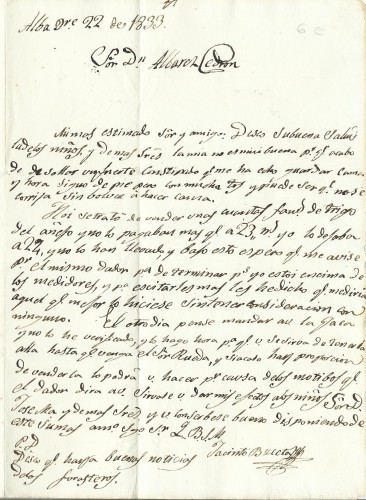 Alba Dre 22 de 1833.
Sor Dn Alvarez Cedron
Mi mas estimado Sor y amigo: Deseo su buena salud
la de los niños, y demas Sres la mia no es mui buena pr qe acabo
de un fuerte constipado qe me ha echo guardar cama
y hora sigo de pie pero con mucha tos y puede ser qe no se
corrija sin bolver a hacer cama.
Hoi se trato de vender unas cuantas fans de trigo
del añejo y no lo pagaban mas qe a 23 rs yo lo dejaba
a 24, y no lo han llevado, y bajo esto espero qe me avise
pr el mismo dador pa determinar pr qe yo estoi encima de
los medidores, y pa escitarles mas les he dicho qe mediria
aquel qe mejor lo hiciese sin tener consideracion con
ninguno. El otro dia pense mandar a V. la Jaca
y no lo he verificado, y lo hago hora pa qe V. se sirva de tenerla
alla hasta qe venga el Sor Rueda, y si acaso hay proporcion
de venderla lo podrá V. hacer pr causa de los motibos qe
el dador dira a V. Sirvase V. dar mis afectos a los niños Sra Da
Josefita y demas Sres y V. consérbese bueno disponiendo de
este su mas amo Sgo Sr Q.B.S.M.
Jacinto
P.D.
Diga qe haya buenas noticias
de los forasteros.